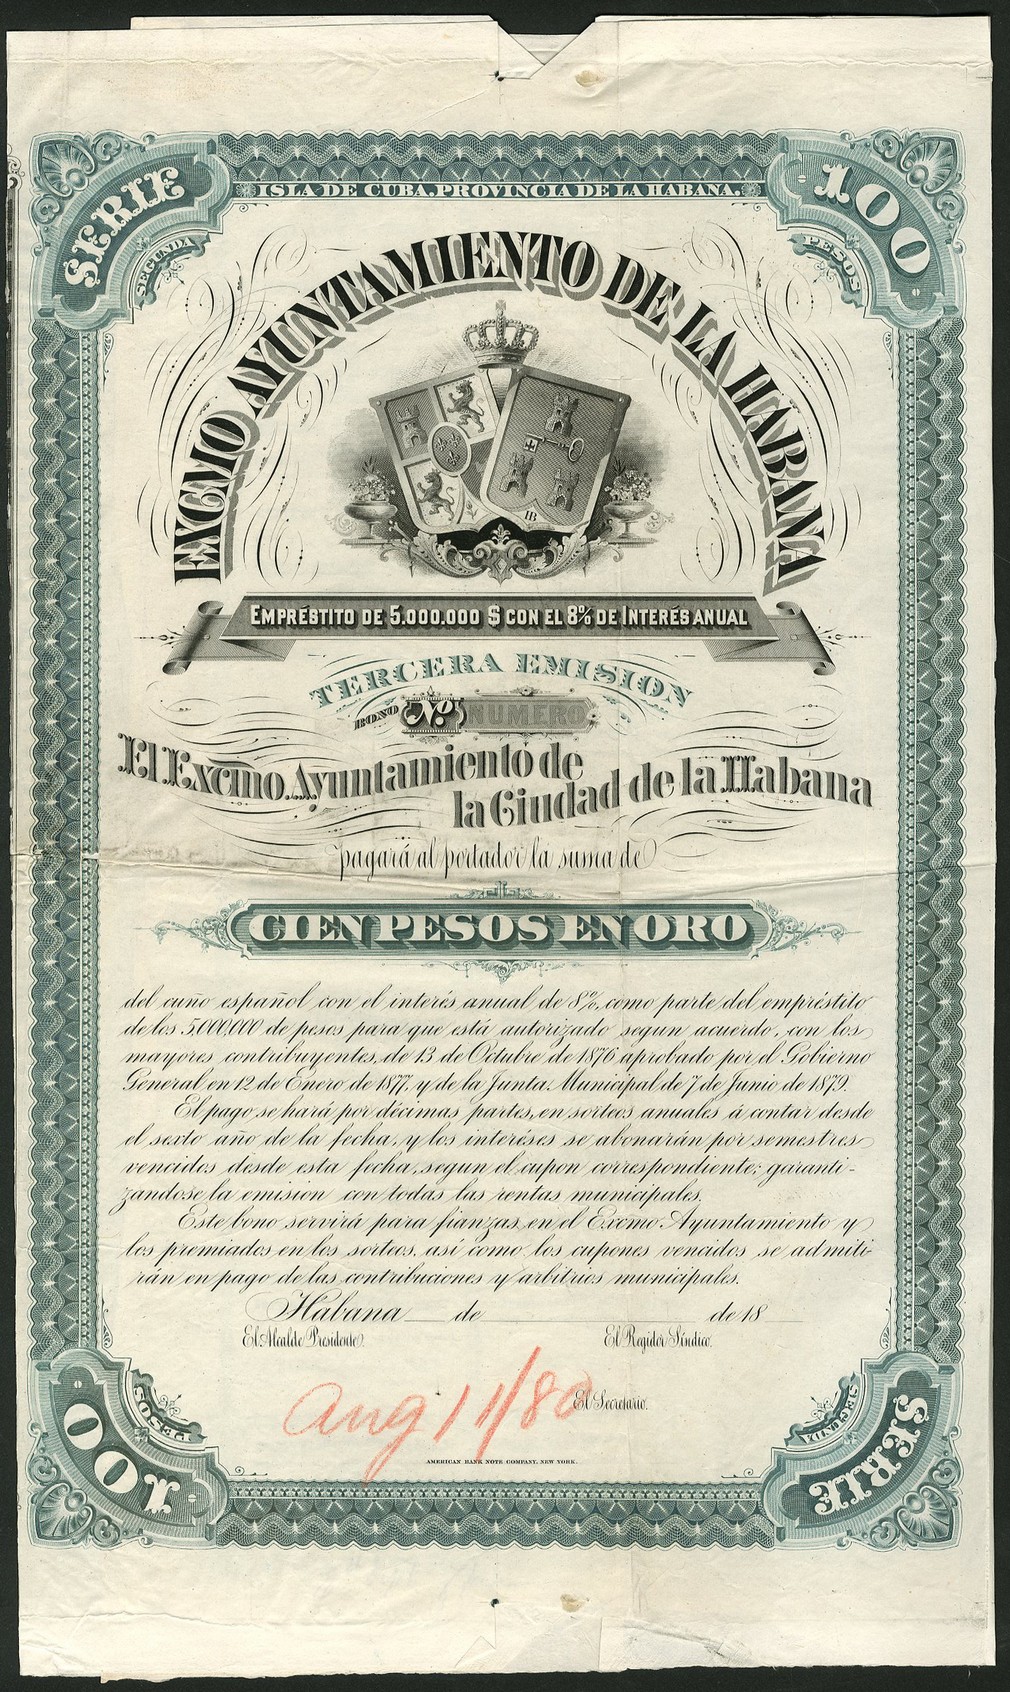 ISLA DE CUBA. PROVINCIA DE LA HABANA.
SERIE
SEGUNDA
100
PESOS
EXCMO AYUNTAMIENTO DE LA HABANA
EMPRÉSTITO DE 5.000.000 $ CON EL 8% DE INTERÉS ANUAL
TERCERA EMISION
BONO No. NUMERO
El Excmo. Ayuntamiento de
la Ciudad de la Habana
pagará al portador la suma de
CIEN PESOS EN ORO
del cuño español con el interés anual de 8%, como parte del empréstito
de los 5,000,000 de pesos para que está autorizado segun acuerdo, con los
mayores contribuyentes, de 13 de Octubre de 1876 aprobado por el Gobierno
General en 12 de Enero de 1877, y de la Junta Municipal de 7 de Junio de 1879.
El pago se hará por décimas partes, en sorteos anuales á contar desde
el sexto año de la fecha, y los interéses se abonarán por semestres
vencidos desde esta fecha, segun el cupon correspondiente; garanti-
zandose la emision con todas las rentas municipales.
Este bono servirá para fianzas en el Excmo Ayuntamiento y
los premiados en los sorteos, así como los cupones vencidos se admiti-
rán en pago de las contribuciones y arbitrios municipales.
Habana de de 18
El Alcalde Presidente. El Regidor Síndico.
Aug 11/80
El Secretario.
AMERICAN BANK NOTE COMPANY, NEW YORK.
100
PESOS
SEGUNDA
SERIE